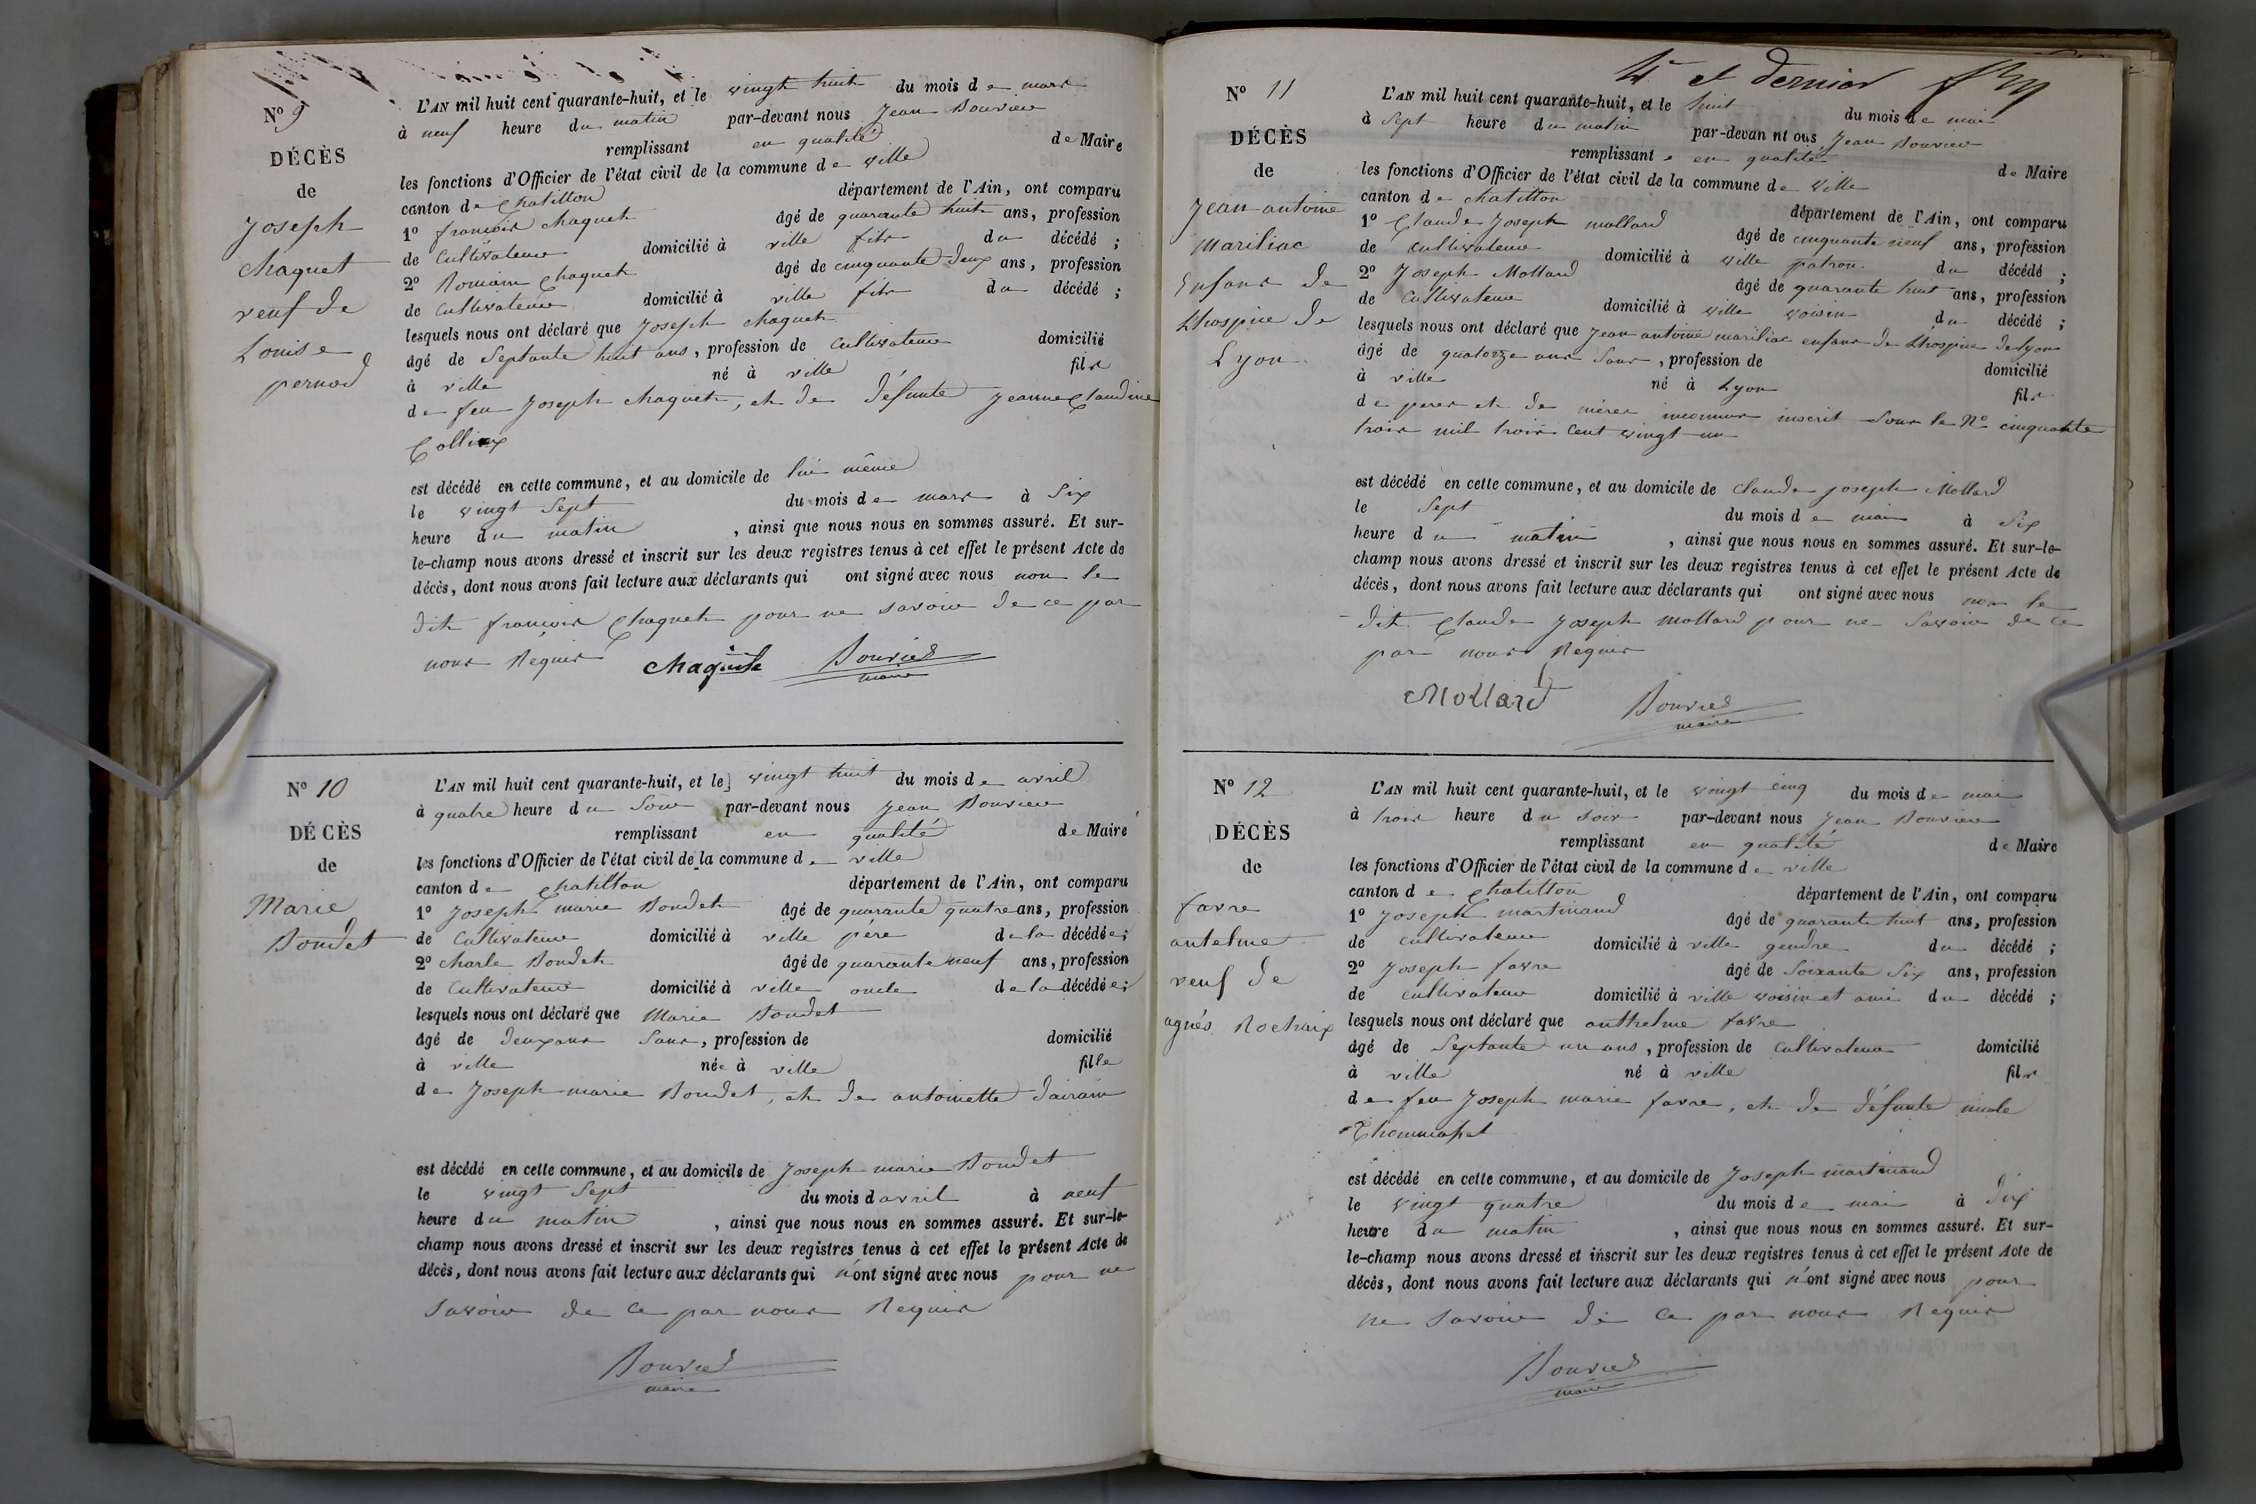 Nº 9
DÉCÈS
de
Joseph
chaquet
veuf de
Louise
pernod
L'AN mil huit cent quarante-huit, et le vingt huit du mois de mars
à neuf heure du matin par-devant nous Jean Bouvier
remplissant en qualité de Maire
les fonctions d'Officier de l'état civil de la commune de ville
canton de Chatillon département de l'Ain, ont comparu
1º françois chaquet âgé de quarante huit ans, profession
de Cultivateur domicilié à ville fils du décédé ;
2º Romain Chaquet âgé de cinquante deux ans, profession
de Cultivateur domicilié à ville fils du décédé ;
lesquels nous ont déclaré que Joseph chaquet
âgé de Septante huit ans, profession de Cultivateur domicilié
à ville né à ville fils
de feu Joseph chaquet, et de défunte Jeanne Claudine
Colliex
est décédé en cette commune, et au domicile de lui même
le vingt Sept du mois de mars à Six
heure du matin , ainsi que nous nous en sommes assuré. Et sur-
le-champ nous avons dressé et inscrit sur les deux registres tenus à cet effet le présent Acte de
décès, dont nous avons fait lecture aux déclarants qui ont signé avec nous non le
dit françois Chaquet pour ne savoir de ce par
nous Requis
Bouvier
maire
Nº 10
DÉCÈS
de
Marie
Boudet
L'AN mil huit cent quarante-huit, et le vingt huit du mois de avril
à quatre heure du Soir par-devant nous Jean Bouvier
remplissant en qualité de Maire
les fonctions d'Officier de l'état civil de la commune de ville
canton de Chatillon département de l'Ain, ont comparu
1º Joseph marie Boudet âgé de quarante quatre ans, profession
de Cultivateur domicilié à ville père de la décédée ;
2º charle Boudet âgé de quarante neuf ans, profession
de Cultivateur domicilié à ville oncle de la décédée ;
lesquels nous ont déclaré que Marie Boudet
âgé de deux ans Sans, profession de domicilié
à ville née à ville fille
de Joseph marie Boudet, et de antoinette dairain
est décédé en cette commune, et au domicile de Joseph marie Boudet
le vingt Sept du mois d avril à neuf
heure du matin , ainsi que nous nous en sommes assuré. Et sur-le-
champ nous avons dressé et inscrit sur les deux registres tenus à cet effet le présent Acte de
décès, dont nous avons fait lecture aux déclarants qui n'ont signé avec nous pour ne
savoir de ce par nous Requis
Bouvier
maire
4e et dernier
Nº 11
DÉCÈS
de
Jean antoine
mariliac
Enfans de
Lhospice de
Lyon
L'AN mil huit cent quarante-huit, et le huit du mois de mai
à Sept heure du matin par-devan nt ous Jean Bouvier
remplissant en qualité de Maire
les fonctions d'Officier de l'état civil de la commune de ville
canton de chatillon département de l'Ain, ont comparu
1º Claude Joseph mollard âgé de cinquante neuf ans, profession
de cultivateur domicilié à ville patron du décédé ;
2º Joseph Mollard âgé de quarante huit ans, profession
de Cultivateur domicilié à ville voisin du décédé ;
lesquels nous ont déclaré que Jean antoine mariliac enfans de Lhospice de Lyon
âgé de quatorze ans Sans, profession de domicilié
à ville né à Lyon fils
de peres et de mères inconnus inscrit sous le Nº cinquante
trois mil trois cent vingt un
est décédé en cette commune, et au domicile de Claude joseph Mollard
le Sept du mois de mai à Six
heure du matin , ainsi que nous nous en sommes assuré. Et sur-le-
champ nous avons dressé et inscrit sur les deux registres tenus à cet effet le présent Acte de
décès, dont nous avons fait lecture aux déclarants qui ont signé avec nous non le
dit Claude Joseph mollard pour ne Savoir de ce
par nous Requis
Mollard Bouvier
maire
Nº 12
DÉCÈS
de
favre
antelme
veuf de
agnés Rochaix
L'AN mil huit cent quarante-huit, et le vingt cinq du mois de mai
à trois heure du soir par-devant nous Jean Bouvier
remplissant en qualité de Maire
les fonctions d'Officier de l'état civil de la commune de ville
canton de Chatillon département de l'Ain, ont comparu
1º Joseph martinand âgé de quarante huit ans, profession
de cultivateur domicilié à ville gendre du décédé ;
2º Joseph favre âgé de Soixante Six ans, profession
de cultivateur domicilié à ville voisin et ami du décédé ;
lesquels nous ont déclaré que anthelme favre
âgé de Septante un ans, profession de Cultivateur domicilié
à ville né à ville fils
de feu Joseph marie favre, et de défunte
est décédé en cette commune, et au domicile de Joseph martinand
le vingt quatre du mois de mai à dix
heure du matin , ainsi que nous nous en sommes assuré. Et sur-
le-champ nous avons dressé et inscrit sur les deux registres tenus à cet effet le présent Acte de
décès, dont nous avons fait lecture aux déclarants qui n'ont signé avec nous pour
ne savoir de ce par nous Requis
Bouvier
maire